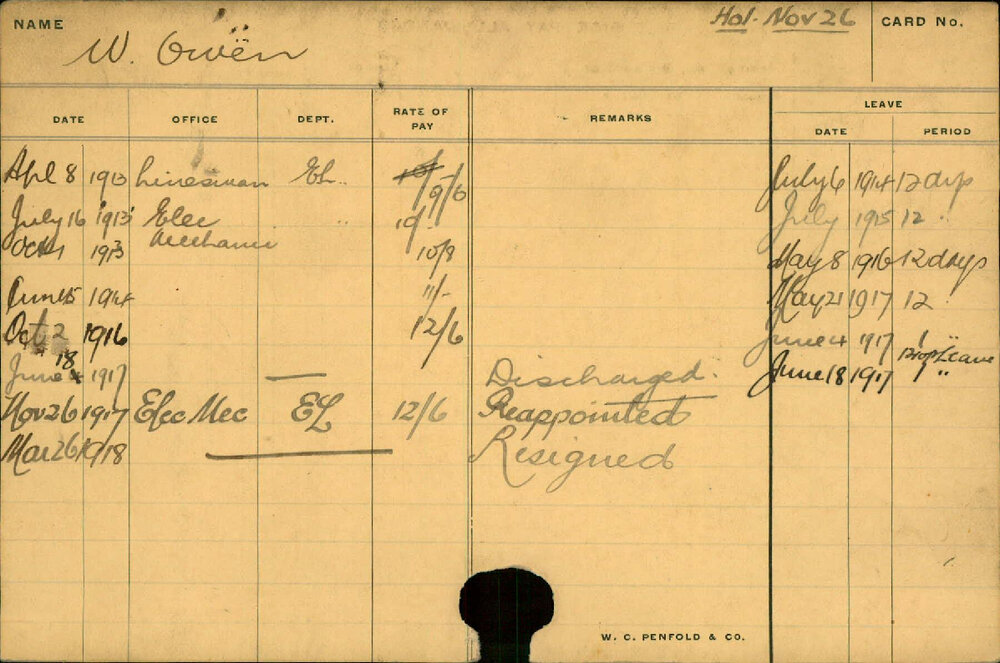 NAME W. Owen Hol. Nov 26 CARD No.
DATE OFFICE DEPT. RATE OF PAY REMARKS LEAVE
DATE PERIOD
Apl 8 1913 Linesman EL. 9/6 July 6 1914 12 dys
July 16 1913 Elec Mechanic " 10/- July 1915 12 "
Oct 1 1913 10/8 May 8 1916 12 days
June 15 1914 11/- May 21 1917 12 "
Oct 2 1916 12/6 June 4 1917 1 "
June 18 1917 Discharged. June 18 1917 1 "
Nov 26 1917 Elec Mec EL 12/6 Reappointed
Mar 26 1918 Resigned
W. C. PENFOLD & CO.